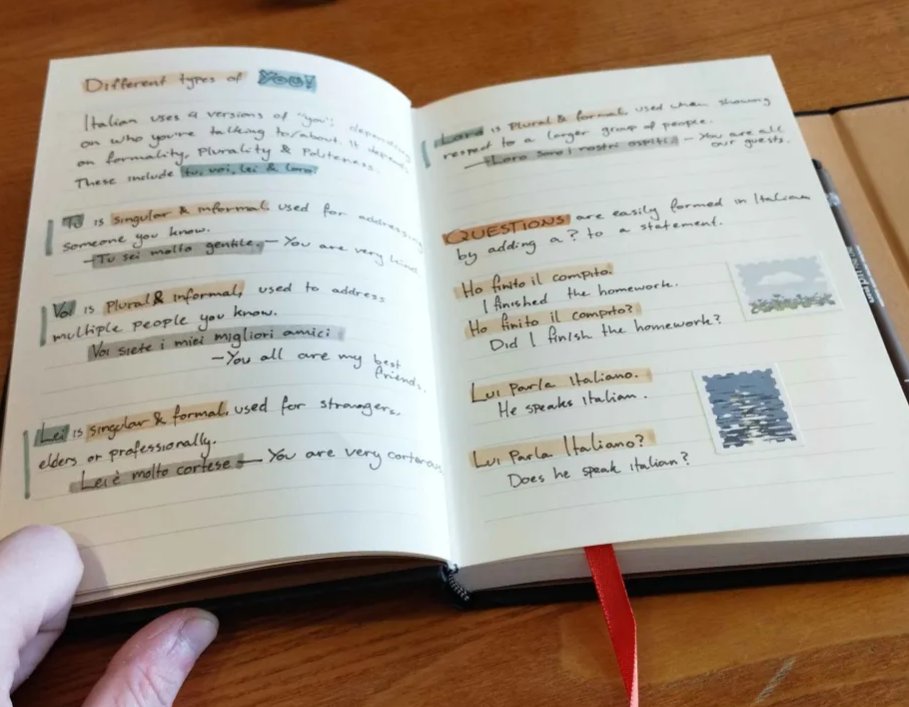 Different types of You!
Italian uses 4 versions of "you", depending
on who you're talking to/about. It depends
on formality, Plurality & Politeness.
These include tu, voi, lei & loro.
Tu is singular & informal, used for addressing
someone you know.
- Tu sei molto gentile. - You are very kind.
Voi is Plural & informal, used to address
multiple people you know.
Voi siete i miei migliori amici
- You all are my best
friends.
Lei is singular & formal, used for strangers,
elders or professionally.
Lei è molto cortese - You are very
Loro is Plural & formal, used when showing
respect to a larger group of people.
- Loro sono i nostri ospiti - You are all
our guests.
QUESTIONS are easily formed in Italian
by adding a ? to a statement.
Ho finito il compito.
I finished the homework.
Ho finito il compito?
Did I finish the homework?
Lui Parla Italiano.
He speaks Italian.
Lui Parla Italiano?
Does he speak italian?